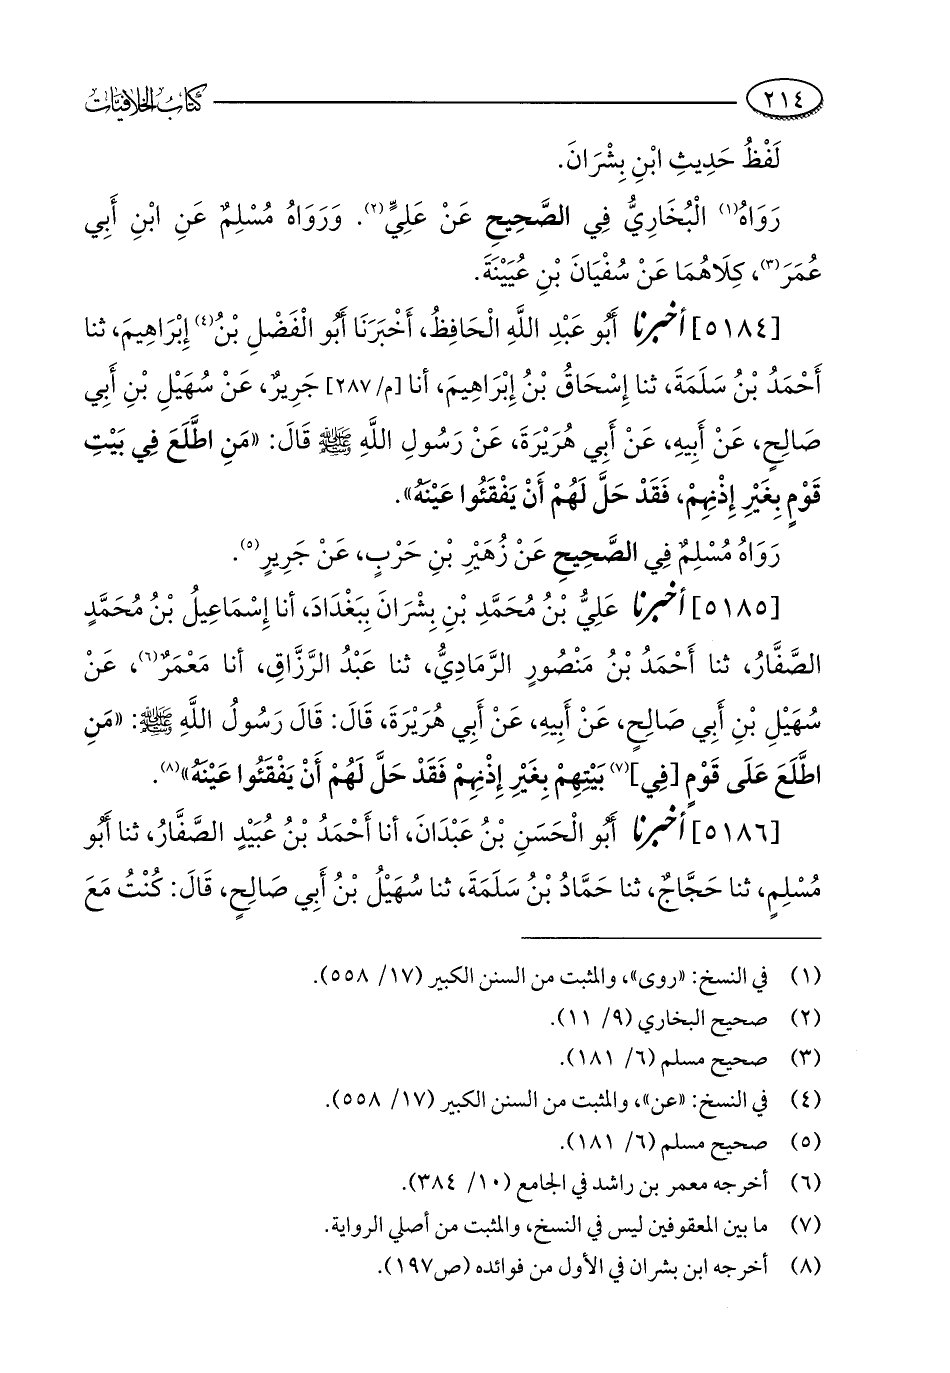 ٢١٤ كتاب الخلافيات
لَفْظُ حَدِيثِ ابْنِ بِشْرَانَ.
رَوَاهُ(١) الْبُخَارِيُّ فِي الصَّحِيحِ عَنْ عَلِيٍّ(٢). وَرَوَاهُ مُسْلِمٌ عَنِ ابْنِ أَبِي
عُمَرَ(٣)، كِلَاهُمَا عَنْ سُفْيَانَ بْنِ عُيَيْنَةَ.
[٥١٨٤] أخبرنا أَبُو عَبْدِ اللَّهِ الْحَافِظُ، أَخْبَرَنَا أَبُو الْفَضْلِ بْنُ(٤) إِبْرَاهِيمَ، ثنا
أَحْمَدُ بْنُ سَلَمَةَ، ثنا إِسْحَاقُ بْنُ إِبْرَاهِيمَ، أنا [م/ ٢٨٧] جَرِيرٌ، عَنْ سُهَيْلِ بْنِ أَبِي
صَالِحٍ، عَنْ أَبِيهِ، عَنْ أَبِي هُرَيْرَةَ، عَنْ رَسُولِ اللَّهِ ﷺ قَالَ: «مَنِ اطَّلَعَ فِي بَيْتِ
قَوْمٍ بِغَيْرِ إِذْنِهِمْ، فَقَدْ حَلَّ لَهُمْ أَنْ يَفْقَئُوا عَيْنَهُ».
رَوَاهُ مُسْلِمٌ فِي الصَّحِيحِ عَنْ زُهَيْرِ بْنِ حَرْبٍ، عَنْ جَرِيرٍ(٥).
[٥١٨٥] أخبرنا عَلِيُّ بْنُ مُحَمَّدِ بْنِ بِشْرَانَ بِبَغْدَادَ، أنا إِسْمَاعِيلُ بْنُ مُحَمَّدٍ
الصَّفَّارُ، ثنا أَحْمَدُ بْنُ مَنْصُورٍ الرَّمَادِيُّ، ثنا عَبْدُ الرَّزَّاقِ، أنا مَعْمَرٌ(٦)، عَنْ
سُهَيْلِ بْنِ أَبِي صَالِحٍ، عَنْ أَبِيهِ، عَنْ أَبِي هُرَيْرَةَ، قَالَ: قَالَ رَسُولُ اللَّهِ ﷺ: «مَنِ
اطَّلَعَ عَلَى قَوْمٍ [فِي](٧) بَيْتِهِمْ بِغَيْرِ إِذْنِهِمْ فَقَدْ حَلَّ لَهُمْ أَنْ يَفْقَئُوا عَيْنَهُ»(٨).
[٥١٨٦] أخبرنا أَبُو الْحَسَنِ بْنُ عَبْدَانَ، أنا أَحْمَدُ بْنُ عُبَيْدٍ الصَّفَّارُ، ثنا أَبُو
مُسْلِمٍ، ثنا حَجَّاجٌ، ثنا حَمَّادُ بْنُ سَلَمَةَ، ثنا سُهَيْلُ بْنُ أَبِي صَالِحٍ، قَالَ: كُنْتُ مَعَ
(١) في النسخ: «روى»، والمثبت من السنن الكبير (١٧/ ٥٥٨).
(٢) صحيح البخاري (٩/ ١١).
(٣) صحيح مسلم (٦/ ١٨١).
(٤) في النسخ: «عن»، والمثبت من السنن الكبير (١٧/ ٥٥٨).
(٥) صحيح مسلم (٦/ ١٨١).
(٦) أخرجه معمر بن راشد في الجامع (١٠/ ٣٨٤).
(٧) ما بين المعقوفين ليس في النسخ، والمثبت من أصلي الرواية.
(٨) أخرجه ابن بشران في الأول من فوائده (ص١٩٧).